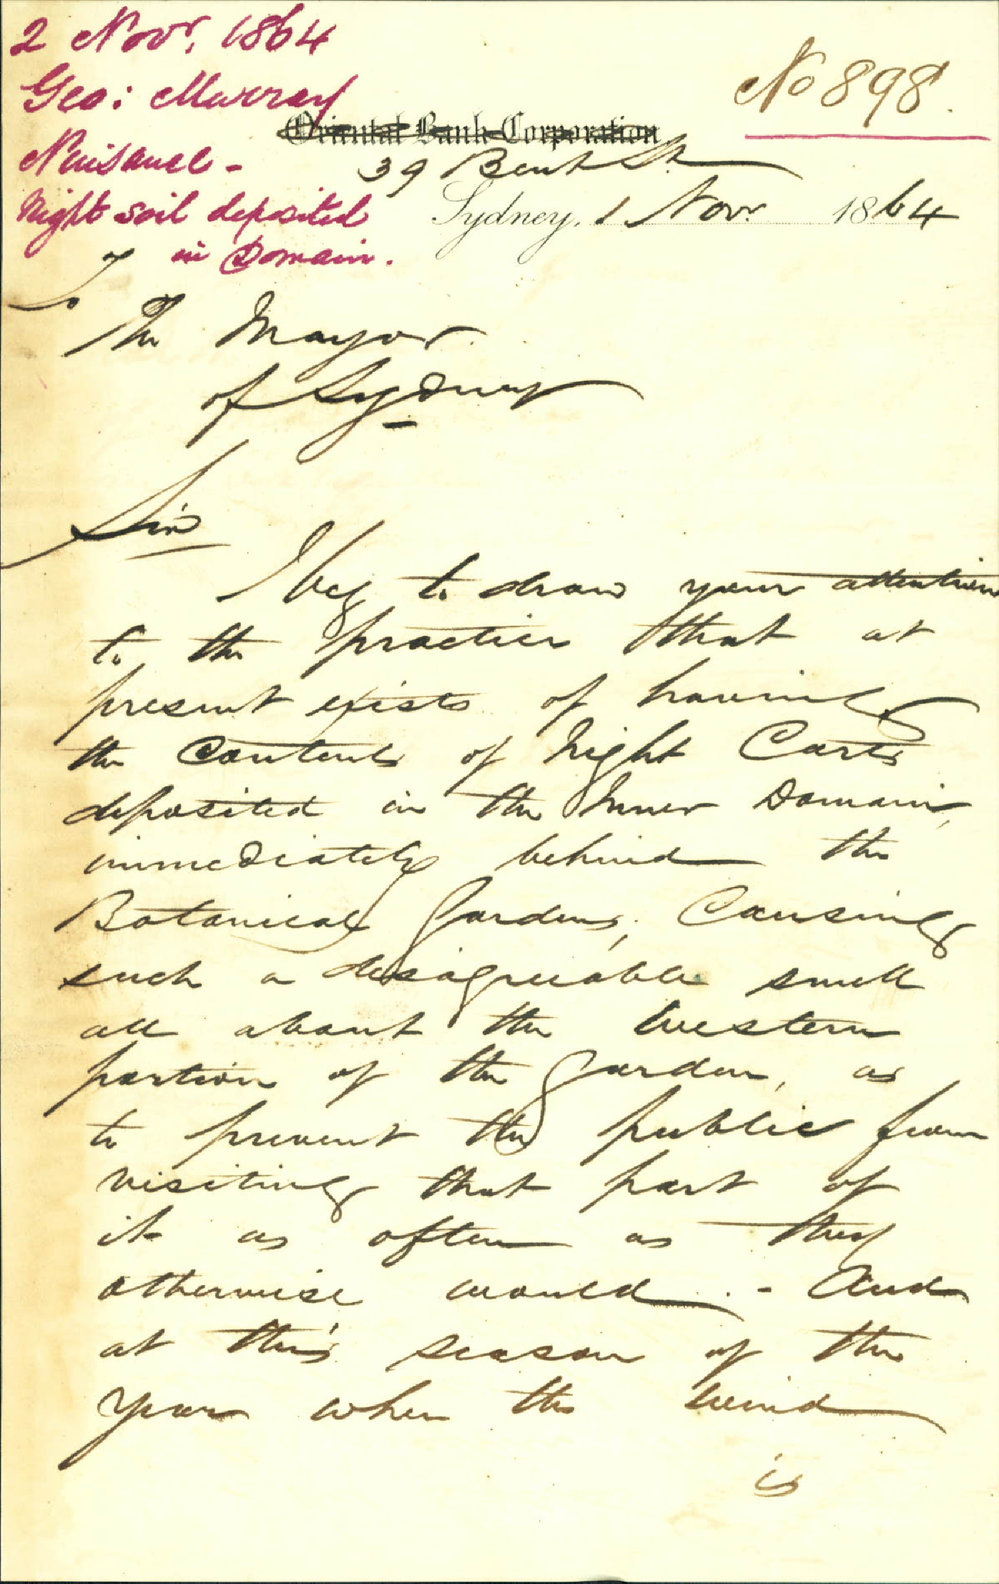 2 Novr. 1864
No 898.
Geo: Murray
Oriental Bank Corporation
Nuisance -
39 Bent St
Night soil deposited
Sydney, 1 Novr 1864
in Domain.
To
The Mayor
of Sydney
Sir
I beg to draw your attention
to the practice that at
present exists of having
the Contents of Night Carts
deposited in the Inner Domain,
immediately behind the
Botanical Gardens, Causing
such a disagreeable smell
all about the Western
portion of the Garden, as
to prevent the public from
visiting that part of
it as often as they
otherwise would. - And
at this season of the
year when the wind
is